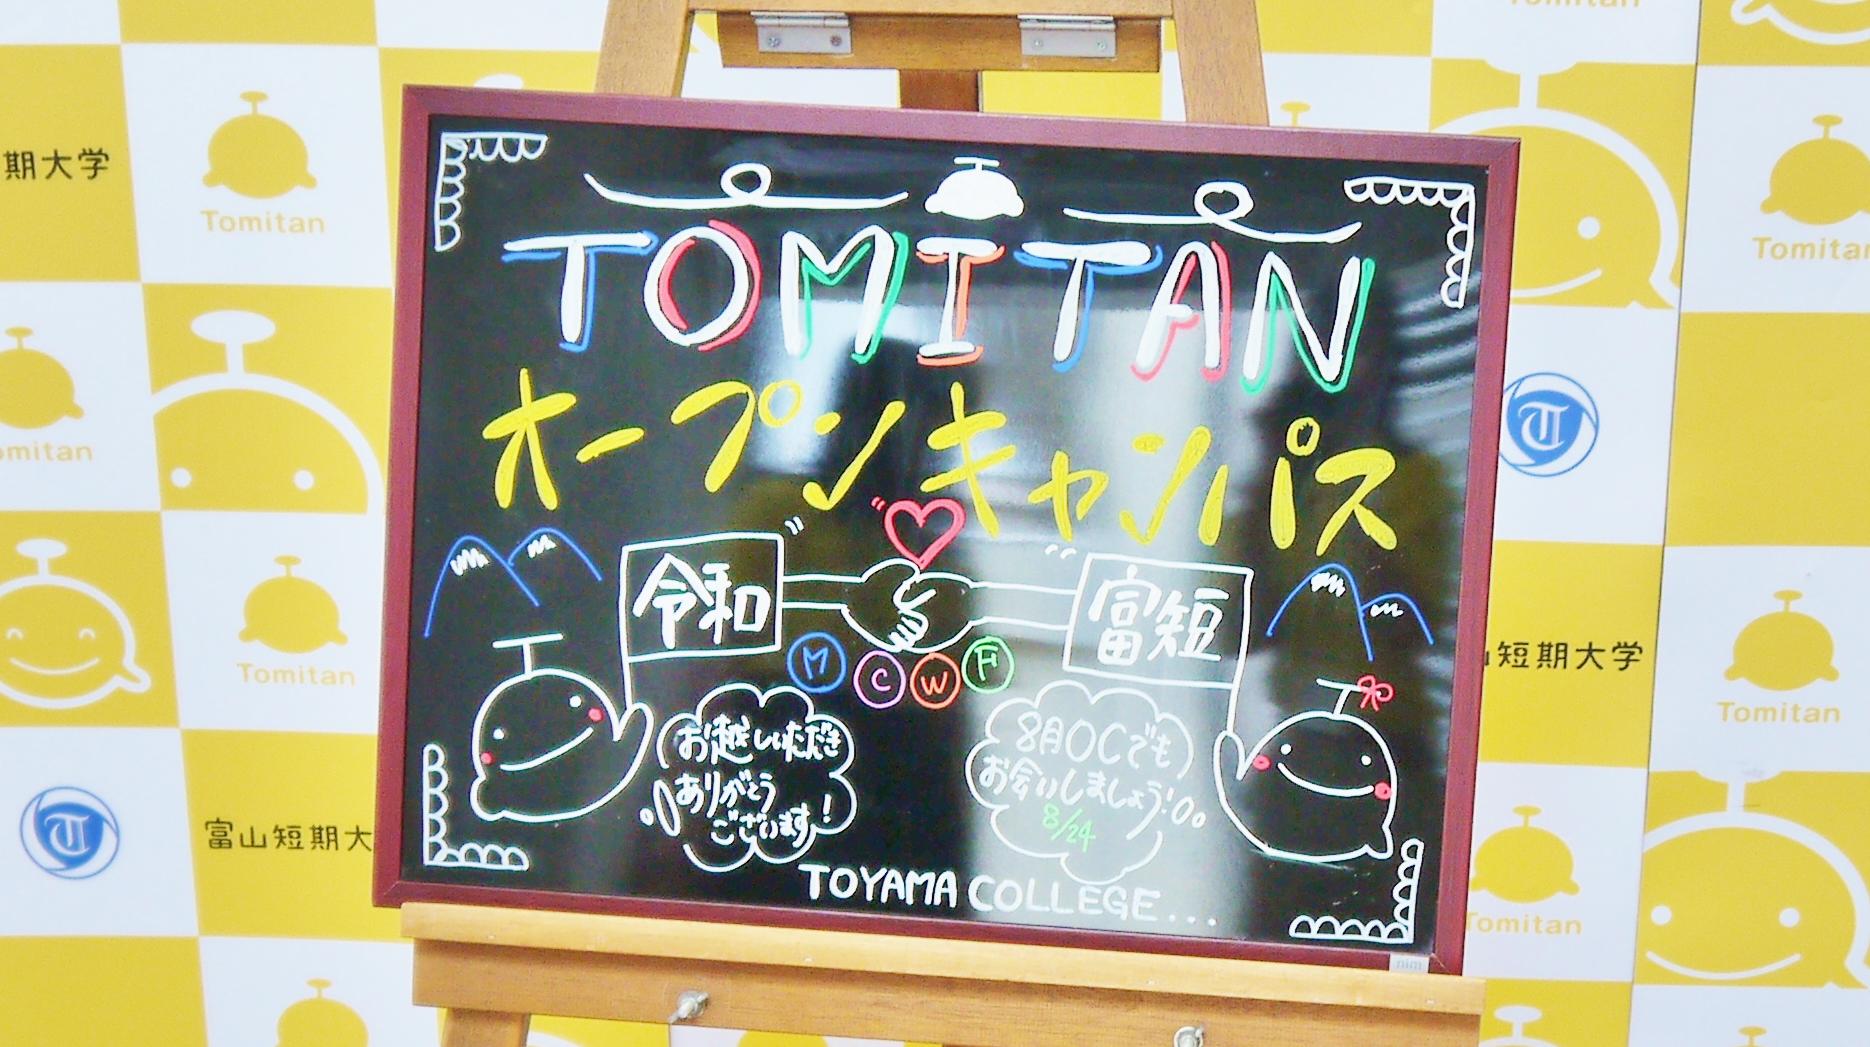 TOMITAN
オープンキャンパス
令和
富短
M C W F
お越しいただき
ありがとう
ございます!
8月OCでも
お会いしましょう!
8/24
TOYAMA COLLEGE...
nim
期大学
Tomitan
Tomitan
Tomitan
omitan
T
山短期大学
Tomitan
Tomitan
T
富山短期大
Tomitan